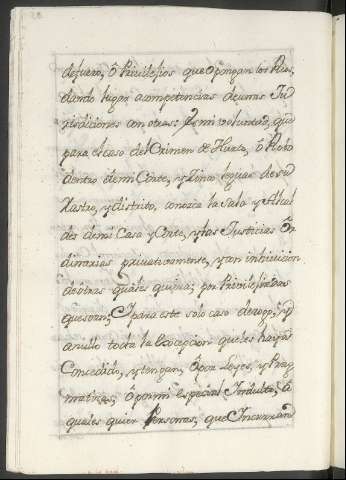 defuero, ô Privilejios que opongan los Reos,
dando lugar acompetencias deunas Ju
risdiciones con otras: Es mi voluntad, que
para el caso del Crimen de Hurto, ô Robo
dentro demi Corte, y Cinco leguas de su
Rastro, y distrito, conozca la Sala y Alcal
des demi Casa y Corte, y las Justicias Ôr
dinarias privativamente, y con inhivicion
de otras quales quiera; por Privilejiadas
que sean; I para este solo caso derogo, y
anullo toda la Excepcion que les haya
Concedido, y tengan, ô por Leyes, y Prag
maticas, ô por mi especial Indulto, â
quales quier Personas, que Incurran